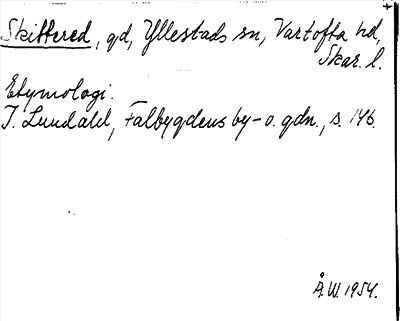 Skittered, gd, Yllestads sn, Vartofta hd,
Skar. l.
Etymologi.
I. Lundahl, Falbygdens by- o. gdn., s. 146.
Å.W. 1954.